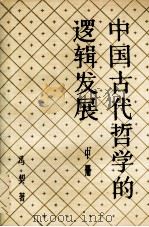 中国古代哲学的
逻辑发展
中册
冯契著
www.toutushu.com